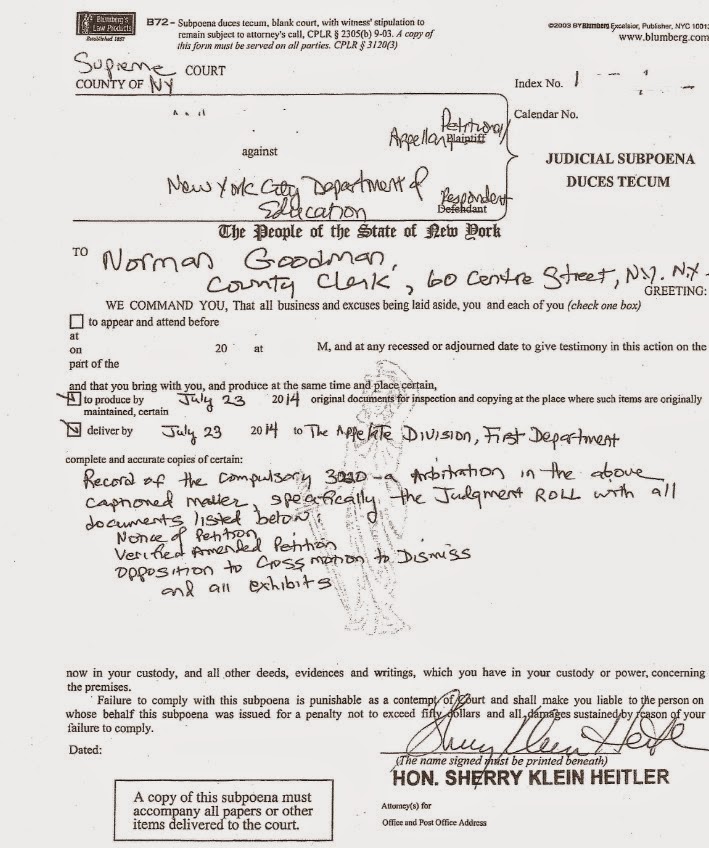 Blumberg's
Law Products
Established 1887
B72 – Subpoena duces tecum, blank court, with witness' stipulation to
remain subject to attorney's call, CPLR § 2305(b) 9-03. A copy of
this form must be served on all parties. CPLR § 3120(3)
©2003 BY Blumberg Excelsior, Publisher, NYC 10013
www.blumberg.com
Supreme COURT
COUNTY OF NY
Index No.
Calendar No.
Petitional/
Appellant Plaintiff
against
JUDICIAL SUBPOENA
DUCES TECUM
New York City Department of
Education
Respondent
Defendant
The People of the State of New York
TO Norman Goodman,
County Clerk, 60 Centre Street, N.Y. N.Y
GREETING:
WE COMMAND YOU, That all business and excuses being laid aside, you and each of you (check one box)
to appear and attend before
at
on 20 at M, and at any recessed or adjourned date to give testimony in this action on the
part of the
and that you bring with you, and produce at the same time and place certain,
to produce by July 23 2014 original documents for inspection and copying at the place where such items are originally
maintained, certain
deliver by July 23 2014 to The Appellate Division, First Department
complete and accurate copies of certain:
Record of the compulsory 3020-a Arbitration in the above
captioned matter, specifically the Judgment ROLL with all
documents listed below:
Notice of Petition
Verified Amended Petition
Opposition to Cross motion to Dismiss
and all exhibits
now in your custody, and all other deeds, evidences and writings, which you have in your custody or power, concerning
the premises.
Failure to comply with this subpoena is punishable as a contempt of Court and shall make you liable to the person on
whose behalf this subpoena was issued for a penalty not to exceed fifty dollars and all damages sustained by reason of your
failure to comply.
Dated:
Sherry Klein Heitler
(The name signed must be printed beneath)
HON. SHERRY KLEIN HEITLER
A copy of this subpoena must
accompany all papers or other
items delivered to the court.
Attorney(s) for
Office and Post Office Address